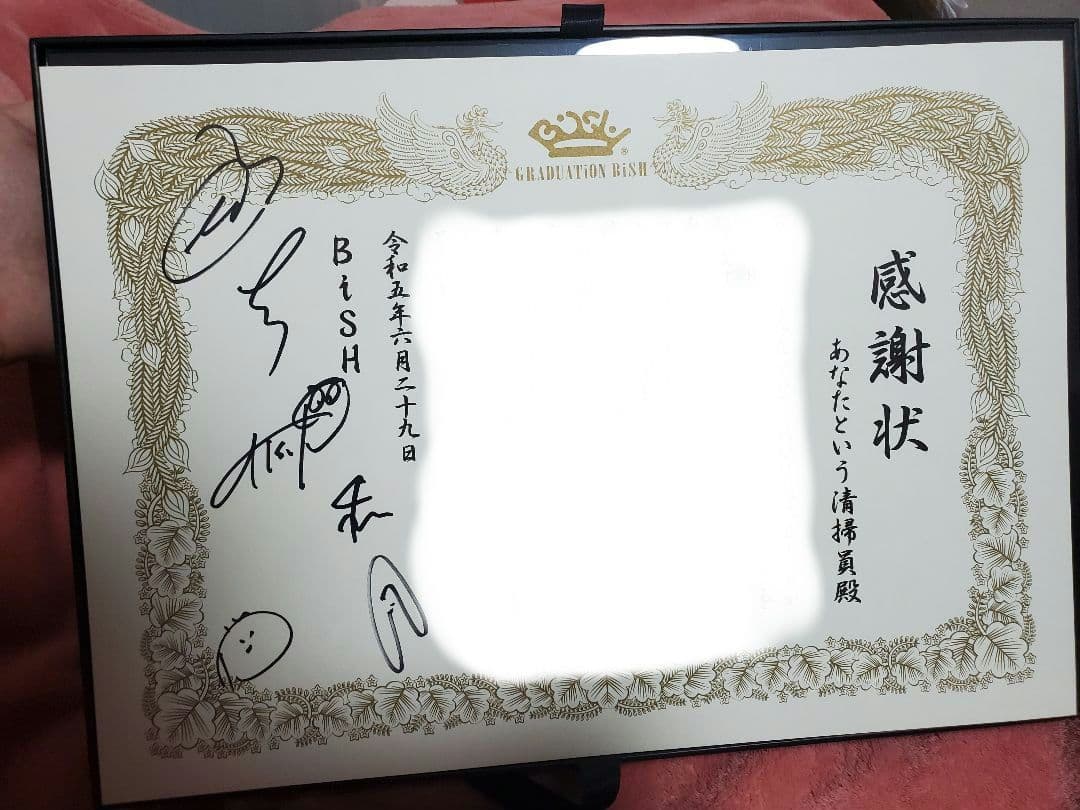 BiSH
GRADUATiON BiSH
感謝状
あなたという清掃員殿
令和五年六月二十九日
BiSH